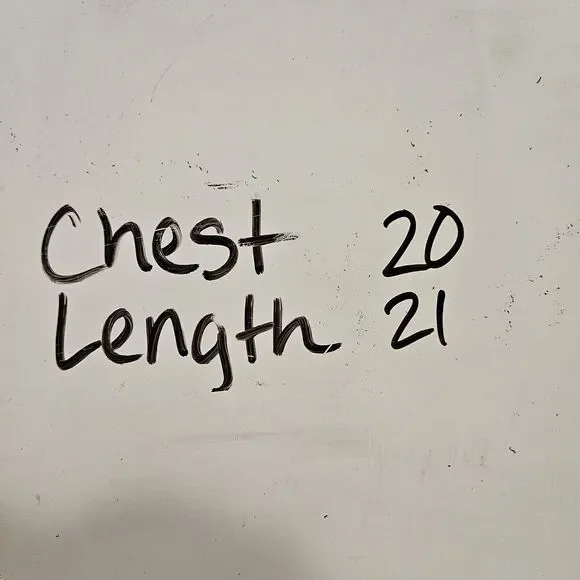 Chest 20
Length 21